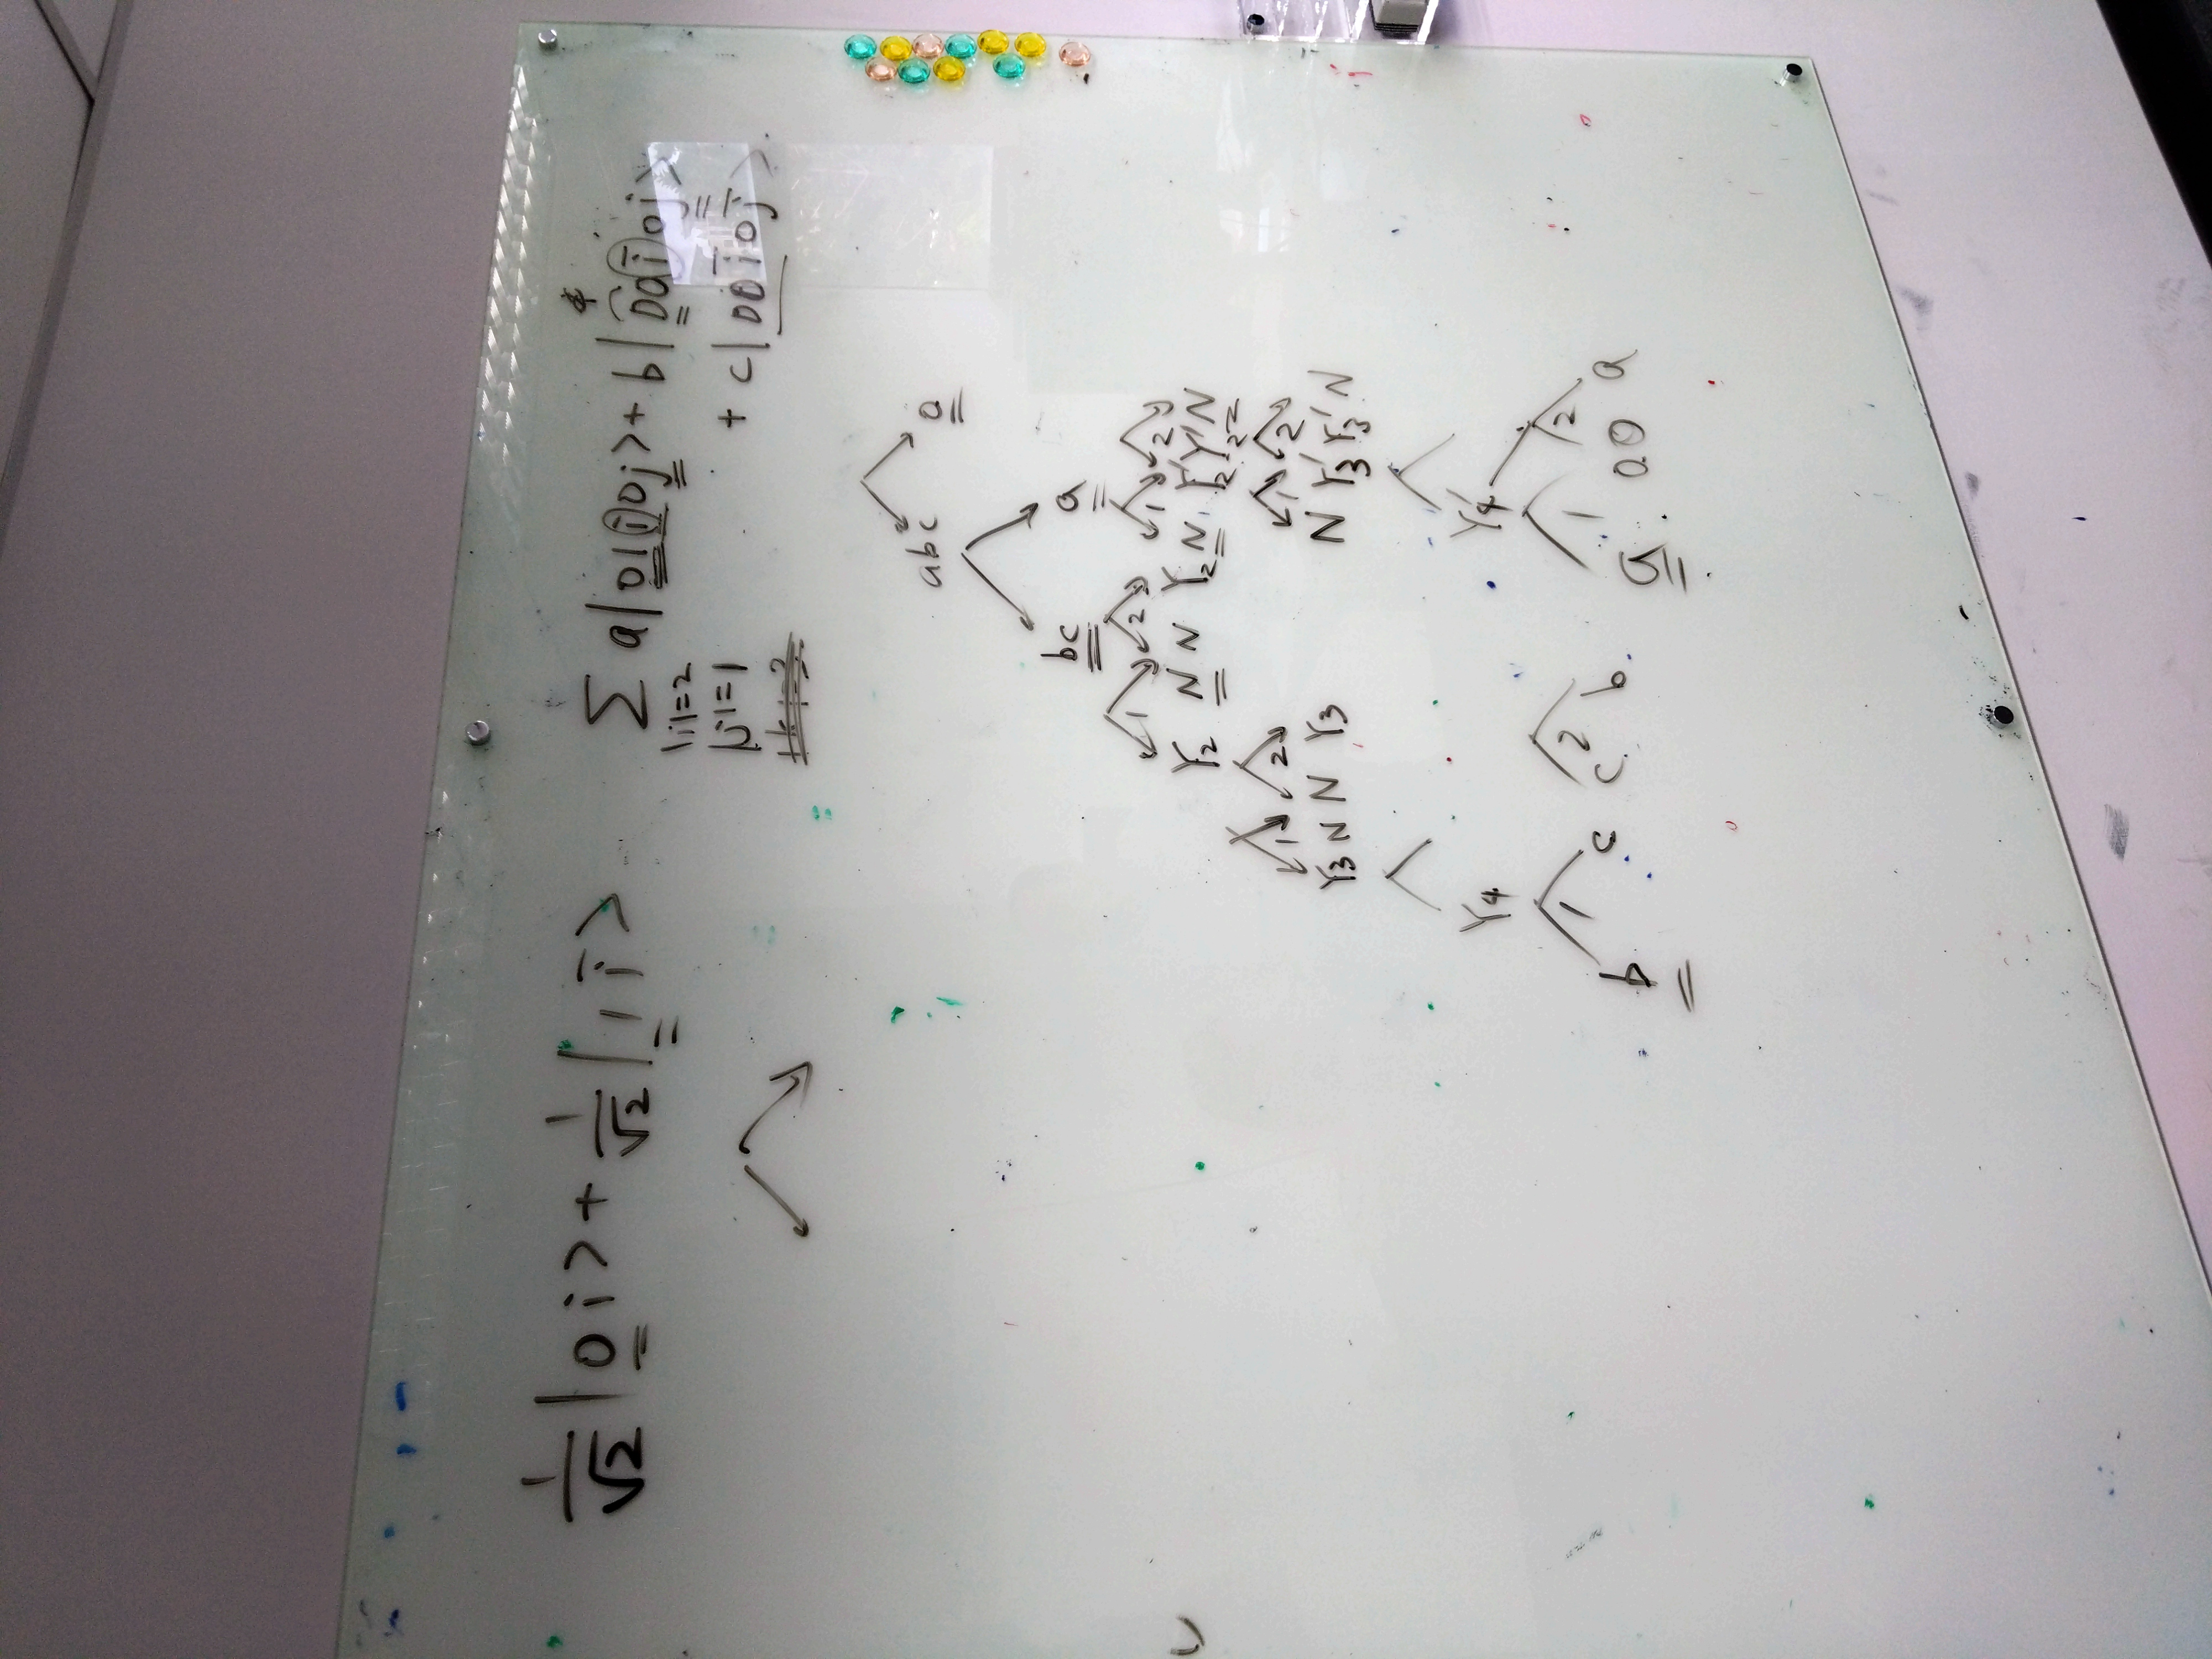 1/√2 |0 i> + 1/√2 |1 i̅>
∑ a|01 i 0j> + b|00 i̅ 0j>
|i|=2
|j|=1 + c|00 i̅ 0j̅>.
abc a
bc a
1 2 1 2
Y₂ N N Y₂ N Y₂' Y₂' N
1 2 1 2
Y₃ N N Y₃ N Y₃' Y₃' N
Y₄ Y₄'
1 2 1 2
b c c b a 0 0 a